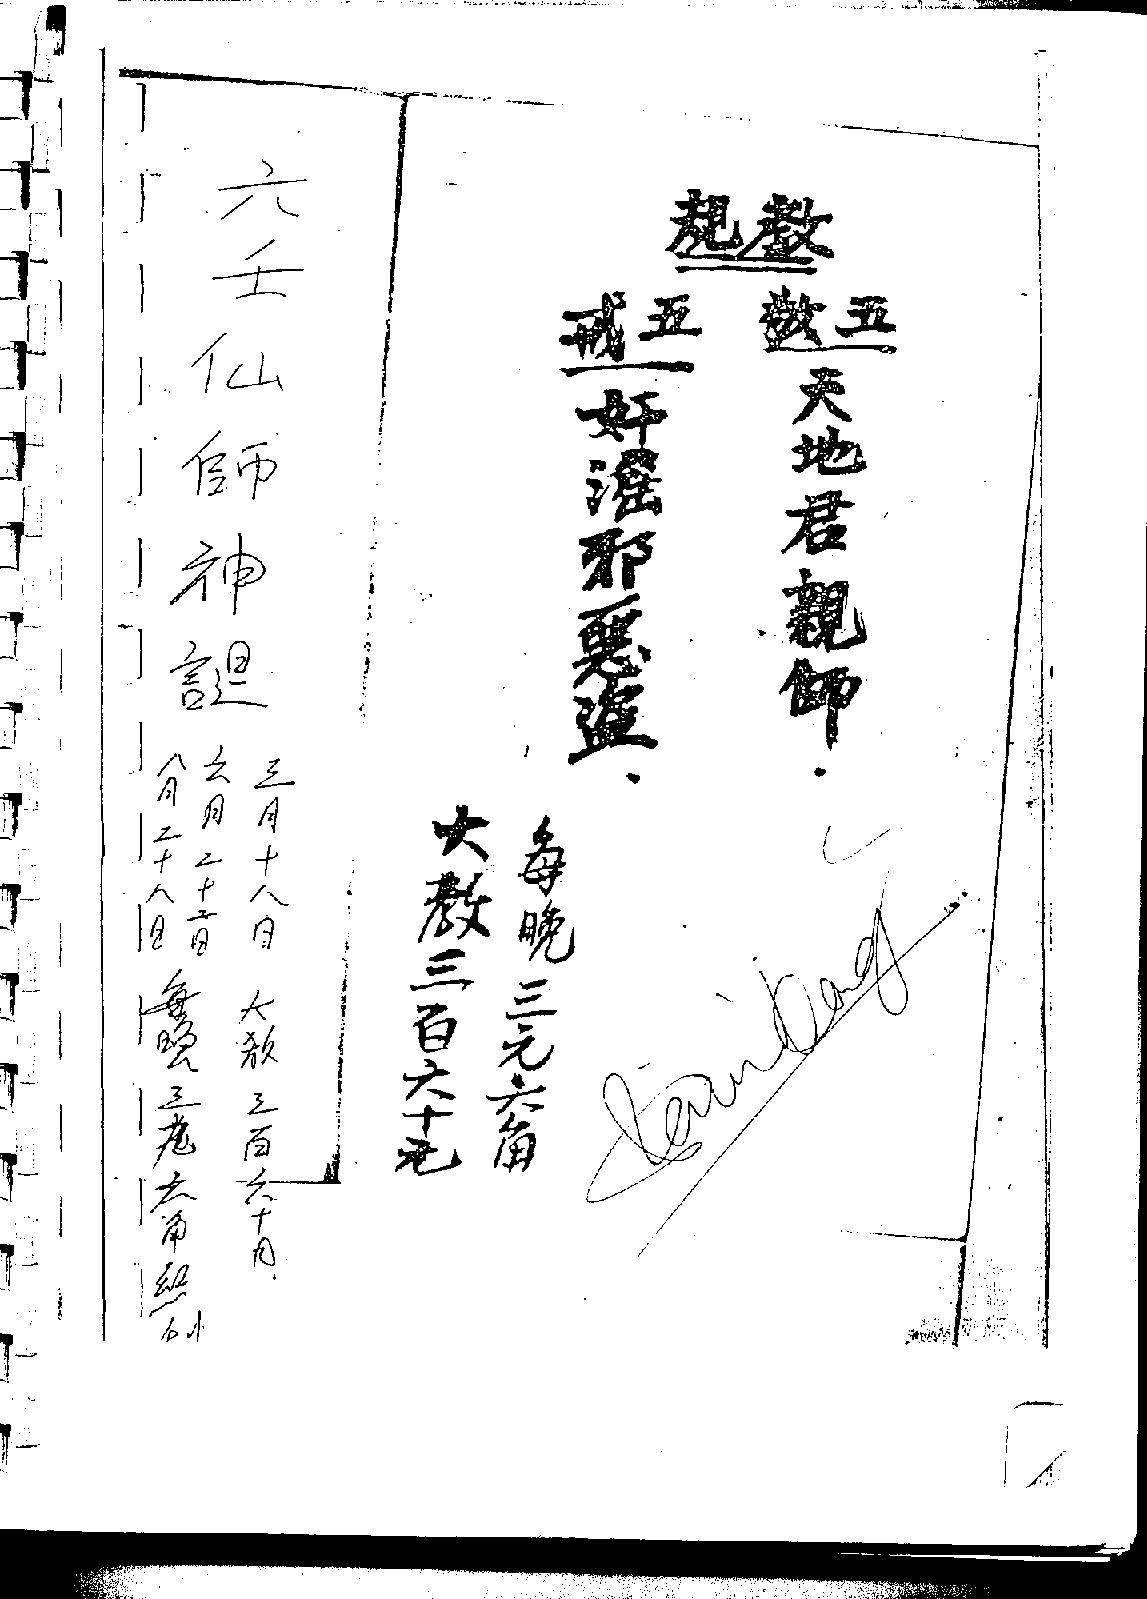 教規
五敬
天地君親師.
五戒
奸淫邪惡盜.
每晚三元六角
大教三百六十元
六壬仙師神誕
三月十八日 大教三百六十
六月二十六日
八月二十八日 每晚三元六角